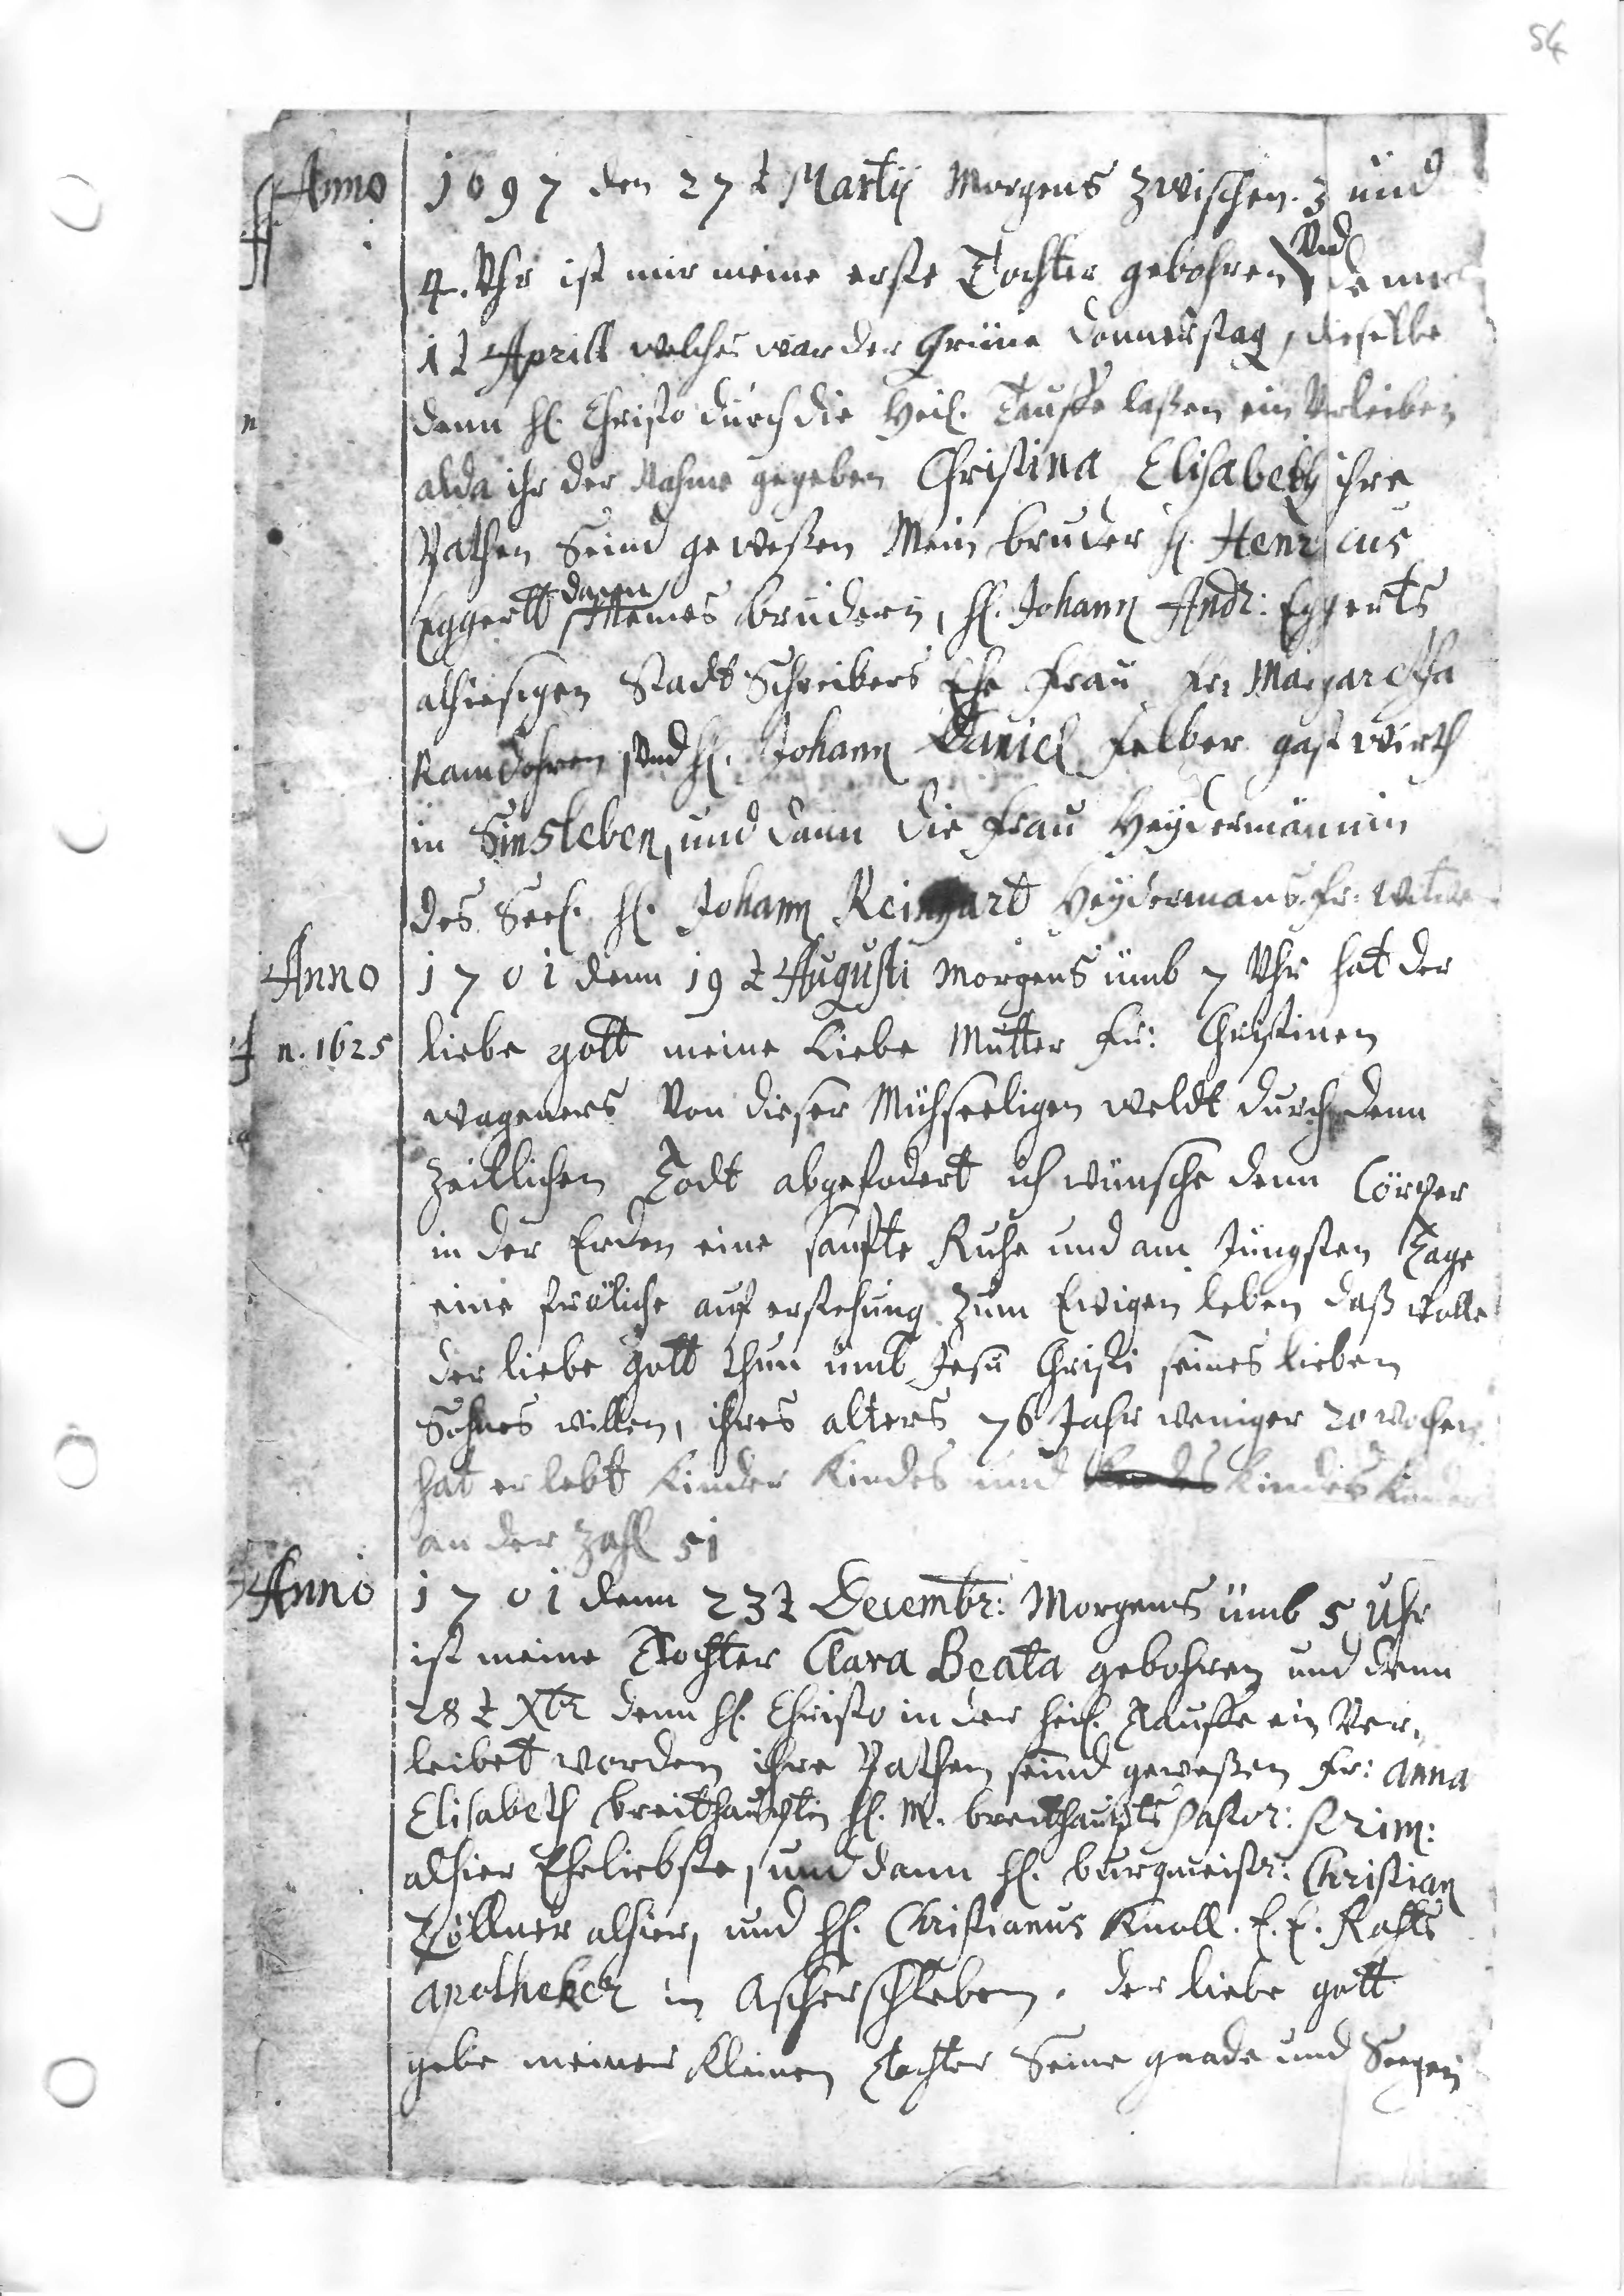 54
Anno 1697 den 27t Martij Morgens zwischen. 3 und
4. Uhr ist mir meine erste Tochter gebohren Und denn
1t Aprill welches war der Grüne Donnerstag, dieselbe
denn H. Christo durch die Heil. Tauffe laßen ein Verleiben
alda ihr der Nahme gegeben Christina Elisabeth ihre
Pathen Seind geweßen Mein bruder H. Henricus
Eggertt dann meines brudern, H. Johann Andr: Eggerts
alhiesigen Stadt Schreibers Ehe Frau Fr: Margaretha
Ramdohren Und H. Johann Daniel Felber gastwirth
in Sinsleben, und dann die Frau Heydermännin
des Seel. H. Johann Reinhart Heydermans Fr: Witwe
Anno 1701 denn 19t Augusti Morgens umb 7 Uhr hat der
n. 1625 liebe gott meine Liebe Mutter Fr: Christinen
wageners Von dieser Mühseeligen weldt durch denn
Zeittlichen Todt abgefodert ich wünsche denn Cörper
in der Erden eine sanfte Ruhe und am Jüngsten Tage
eine fröliche auf erstehung zum Ewigen leben daß wolle
der liebe gott thun umb Jesu Christi seines lieben
Sohnes willen, ihres alters 76 Jahr weniger 20 wochen
hat er lebt Kinder Kindes und Kindes Kinder
an der Zahl 51
Anno 1701 denn 23t Decembr: Morgens umb 5 Uhr
ist meine Tochter Clara Beata gebohren und denn
28t Xbr denn H. Christo in der heil. Tauffe ein Ver,
leibet worden ihre Pathen seind geweßen Fr: Anna
Elisabeth breithauptin H. M. breithaupts Pastor: Prim:
alhier Eheliebste, und dann H. burgmeistr: Christian
Zöllner alhier, und H. Christianus Knoll. E. E. Rahts
apotheker in Ascherschleben. der liebe gott
gebe meiner Kleinen Tochter Seine gnade und Seegen